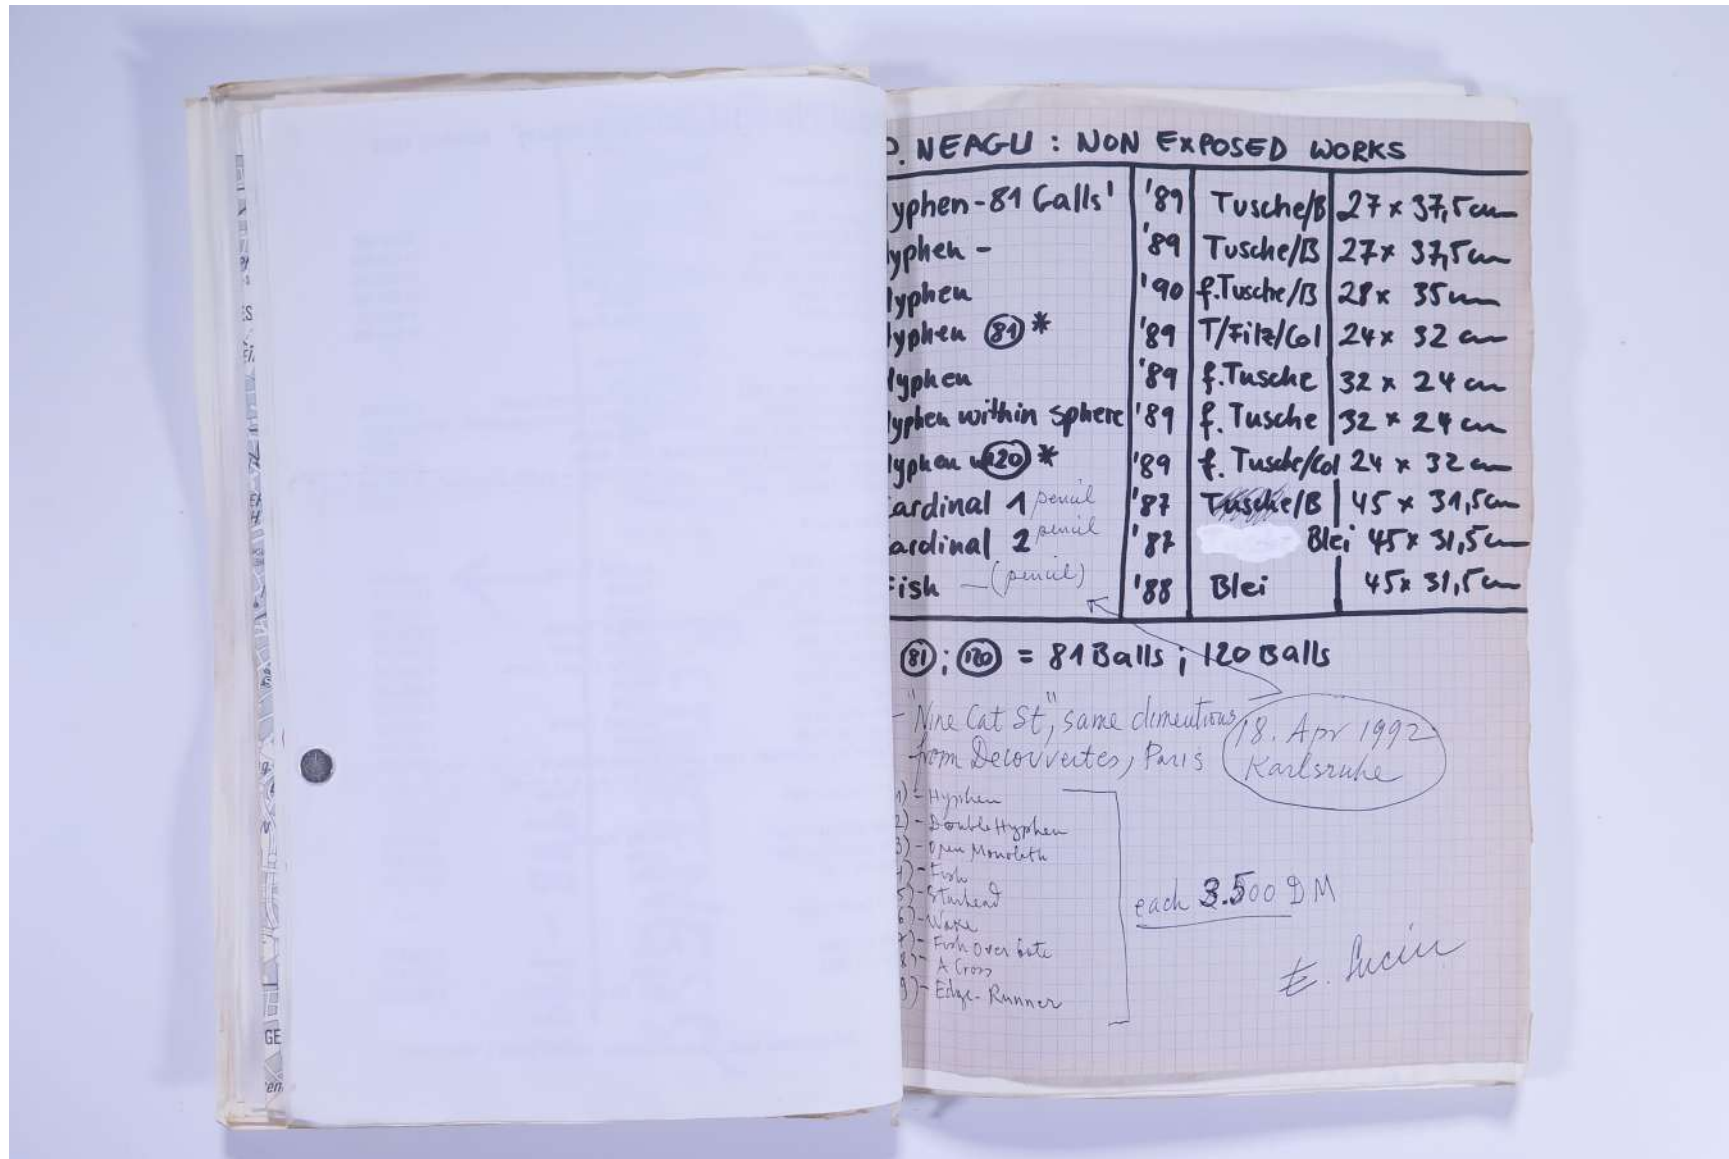 P. NEAGU : NON EXPOSED WORKS
yphen-81 Galls' '89 Tusche/B 27 x 37,5cm
yphen - '89 Tusche/B 27x 37,5cm
yphen '90 f.Tusche/B 28x 35cm
yphen 81 * '89 T/Filz/Col 24x 32 cm
yphen '89 f.Tusche 32 x 24 cm
yphen within sphere '89 f. Tusche 32 x 24 cm
yphen 120 * '89 f. Tusche/Col 24 x 32 cm
Cardinal 1 pencil '87 Tusche/B 45 x 31,5cm
ardinal 2 pencil '87 Blei 45x 31,5cm
Fish - (pencil) '88 Blei 45x 31,5cm
81 ; 120 = 81 Balls ; 120 Balls
- "Nine Cat St", same dimentions
from Decouvertes, Paris
18. Apr 1992
Karlsruhe
1) - Hyphen
2) - Double Hyphen
3) - Open Monolith
4) - Fish
5) - Starhead
6) - Wake
7) - Fish over
8) - A Cross
9) - Edge-Runner
each 3.500 DM
ES
GE